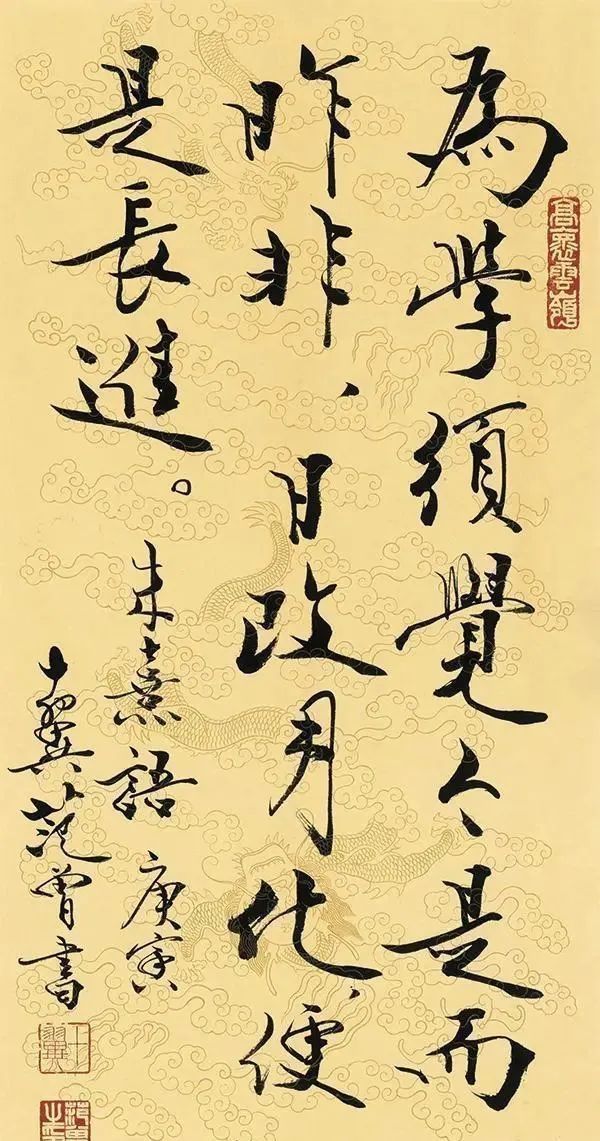 為學須覺今是而
昨非、日改月化、便
是長進。
朱熹語 庚寅
十翼范曾書
十翼